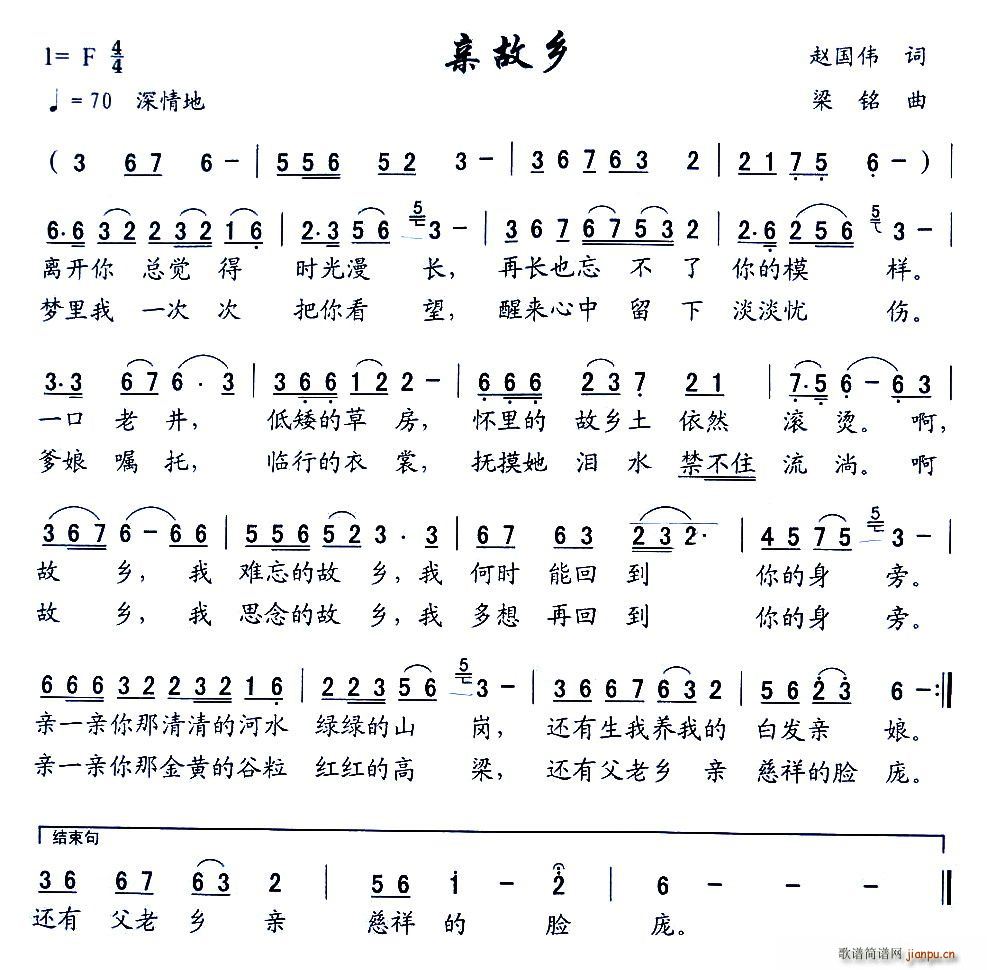 1= F 4/4 亲故乡 赵国伟 词
♩=70 深情地 梁铭 曲
( 3 6 7 6 - | 5 5 6 5 2 3 - | 3 6 7 6 3 2 | 2 1 7 5 6 - ) |
6·6 3 2 2 3 2 1 6 | 2·3 5 6 5 3 - | 3 6 7 6 7 5 3 2 | 2·6 2 5 6 5 3 - |
离开你 总觉 得 时光漫 长, 再长也忘 不 了 你的模 样。
梦里我 一次 次 把你看 望, 醒来心中 留 下 淡淡忧 伤。
3·3 6 7 6 · 3 | 3 6 6 1 2 2 - | 6 6 6 2 3 7 2 1 | 7·5 6 - 6 3 |
一口 老 井, 低矮的草 房, 怀里的 故乡土 依然 滚 烫。 啊,
爹娘 嘱 托, 临行的衣 裳, 抚摸她 泪 水 禁不住 流 淌。 啊
3 6 7 6 - 6 6 | 5 5 6 5 2 3 · 3 | 6 7 6 3 2 3 2· | 4 5 7 5 5 3 - |
故 乡, 我 难忘的故 乡,我 何时 能回 到 你的身 旁。
故 乡, 我 思念的故 乡,我 多想 再回 到 你的身 旁。
6 6 6 3 2 2 3 2 1 6 | 2 2 3 5 6 5 3 - | 3 6 6 7 6 3 2 | 5 6 2 3 6 - :‖
亲一亲你那清清的河水 绿绿的山 岗, 还有生我养我的 白发亲 娘。
亲一亲你那金黄的谷粒 红红的高 粱, 还有父老乡 亲 慈祥的脸 庞。
结束句
3 6 6 7 6 3 2 | 5 6 1 - 2 | 6 - - - ‖
还有 父老 乡 亲 慈祥 的 脸 庞。
歌谱简谱网 jianpu.cn